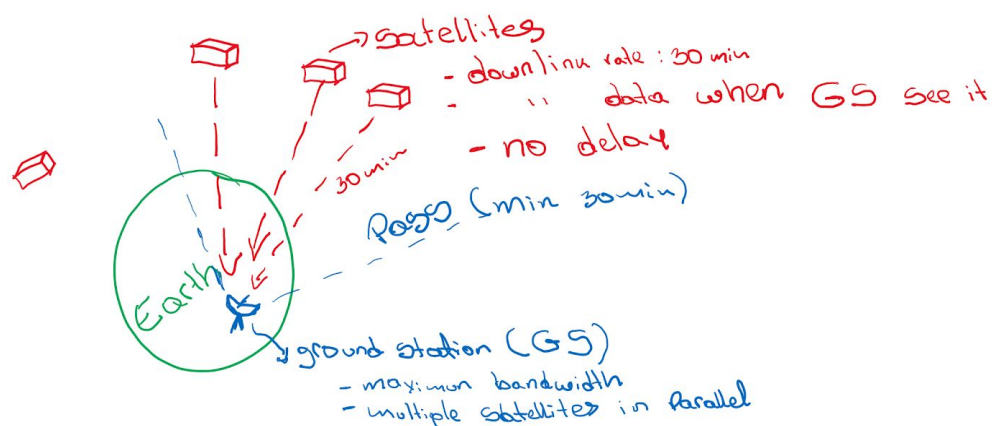 satellites
- downlink rate : 30 min
- '' data when GS see it
- no delay
30min
Pass (min 30min)
Earth
ground station (GS)
- maximun bandwidth
- multiple satellites in Parallel